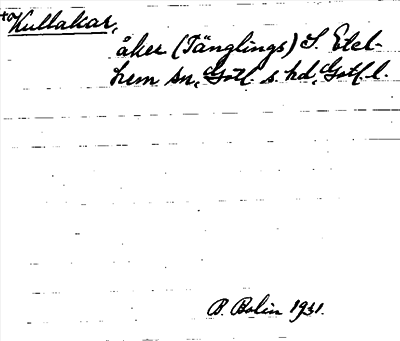 to Kullakar,
åker (Tänglings) S. Etel-
hem sn, Gotl. s. hd, Gotl. l.
B. Bolin 1931.